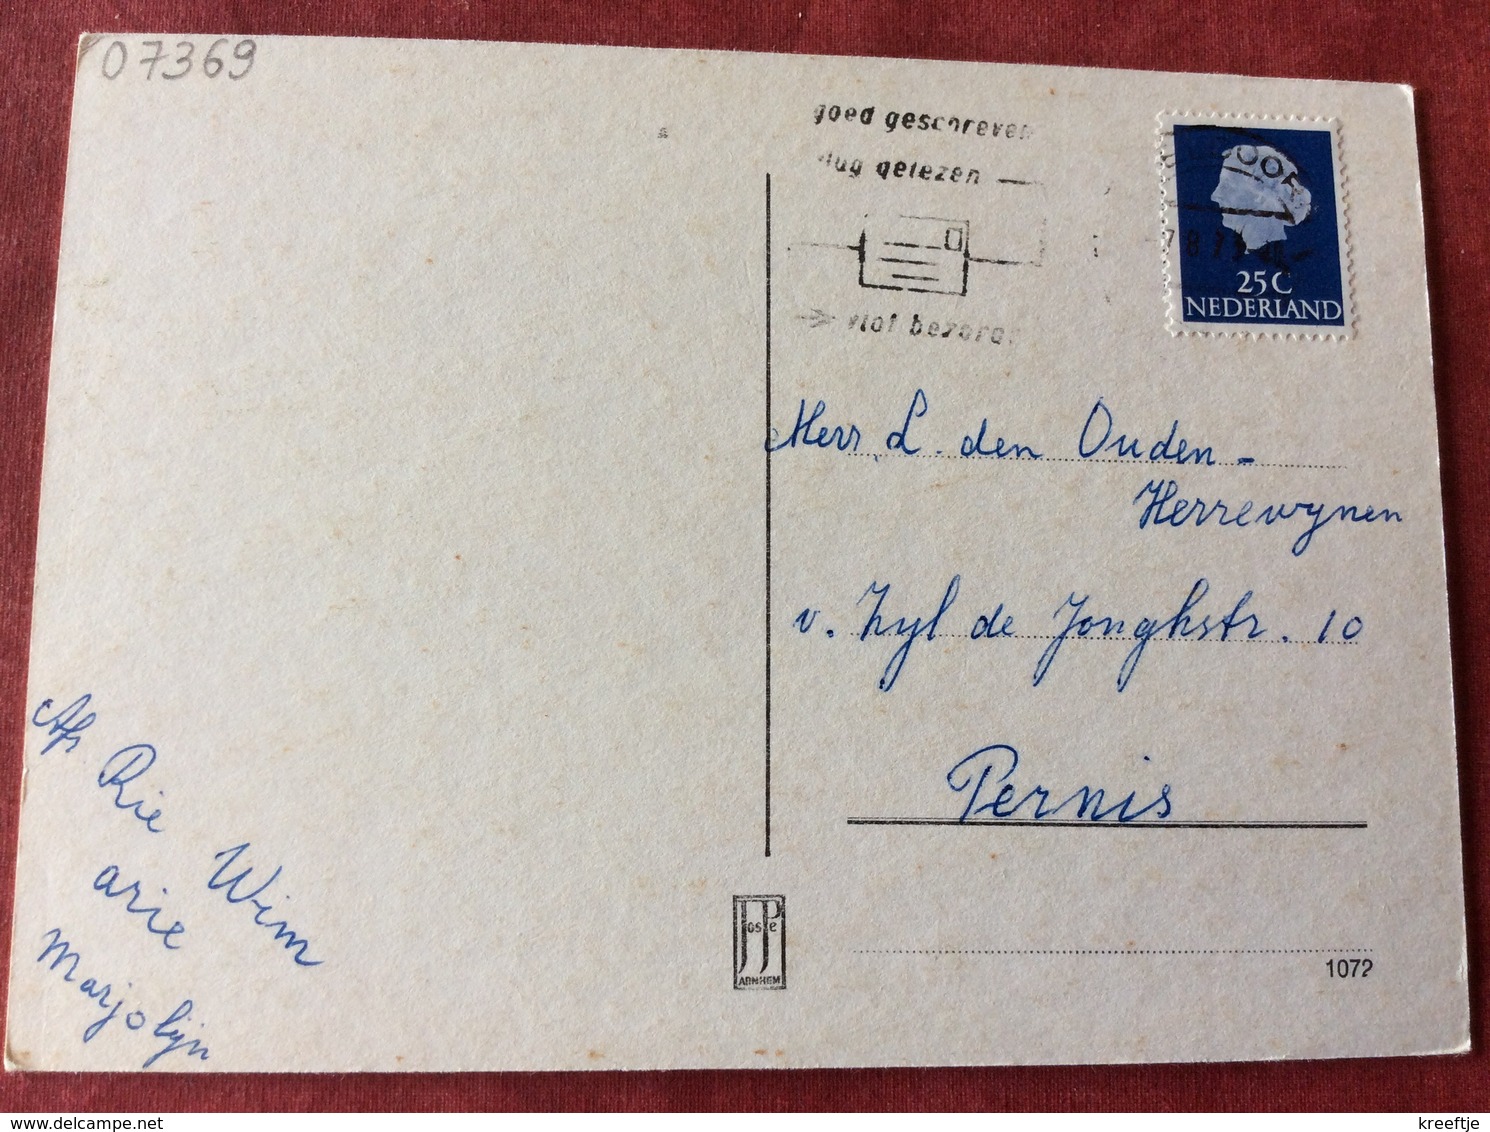 07369
goed geschreven
vlug gelezen
vlot bezorgd
25C
NEDERLAND
Herr L. den Ouden -
Herrewynen
v. Zyl de Jonghstr. 10
Pernis
Afz
Rie Wim
arie
Marjolijn
JosPe
ARNHEM
1072
kreeftje